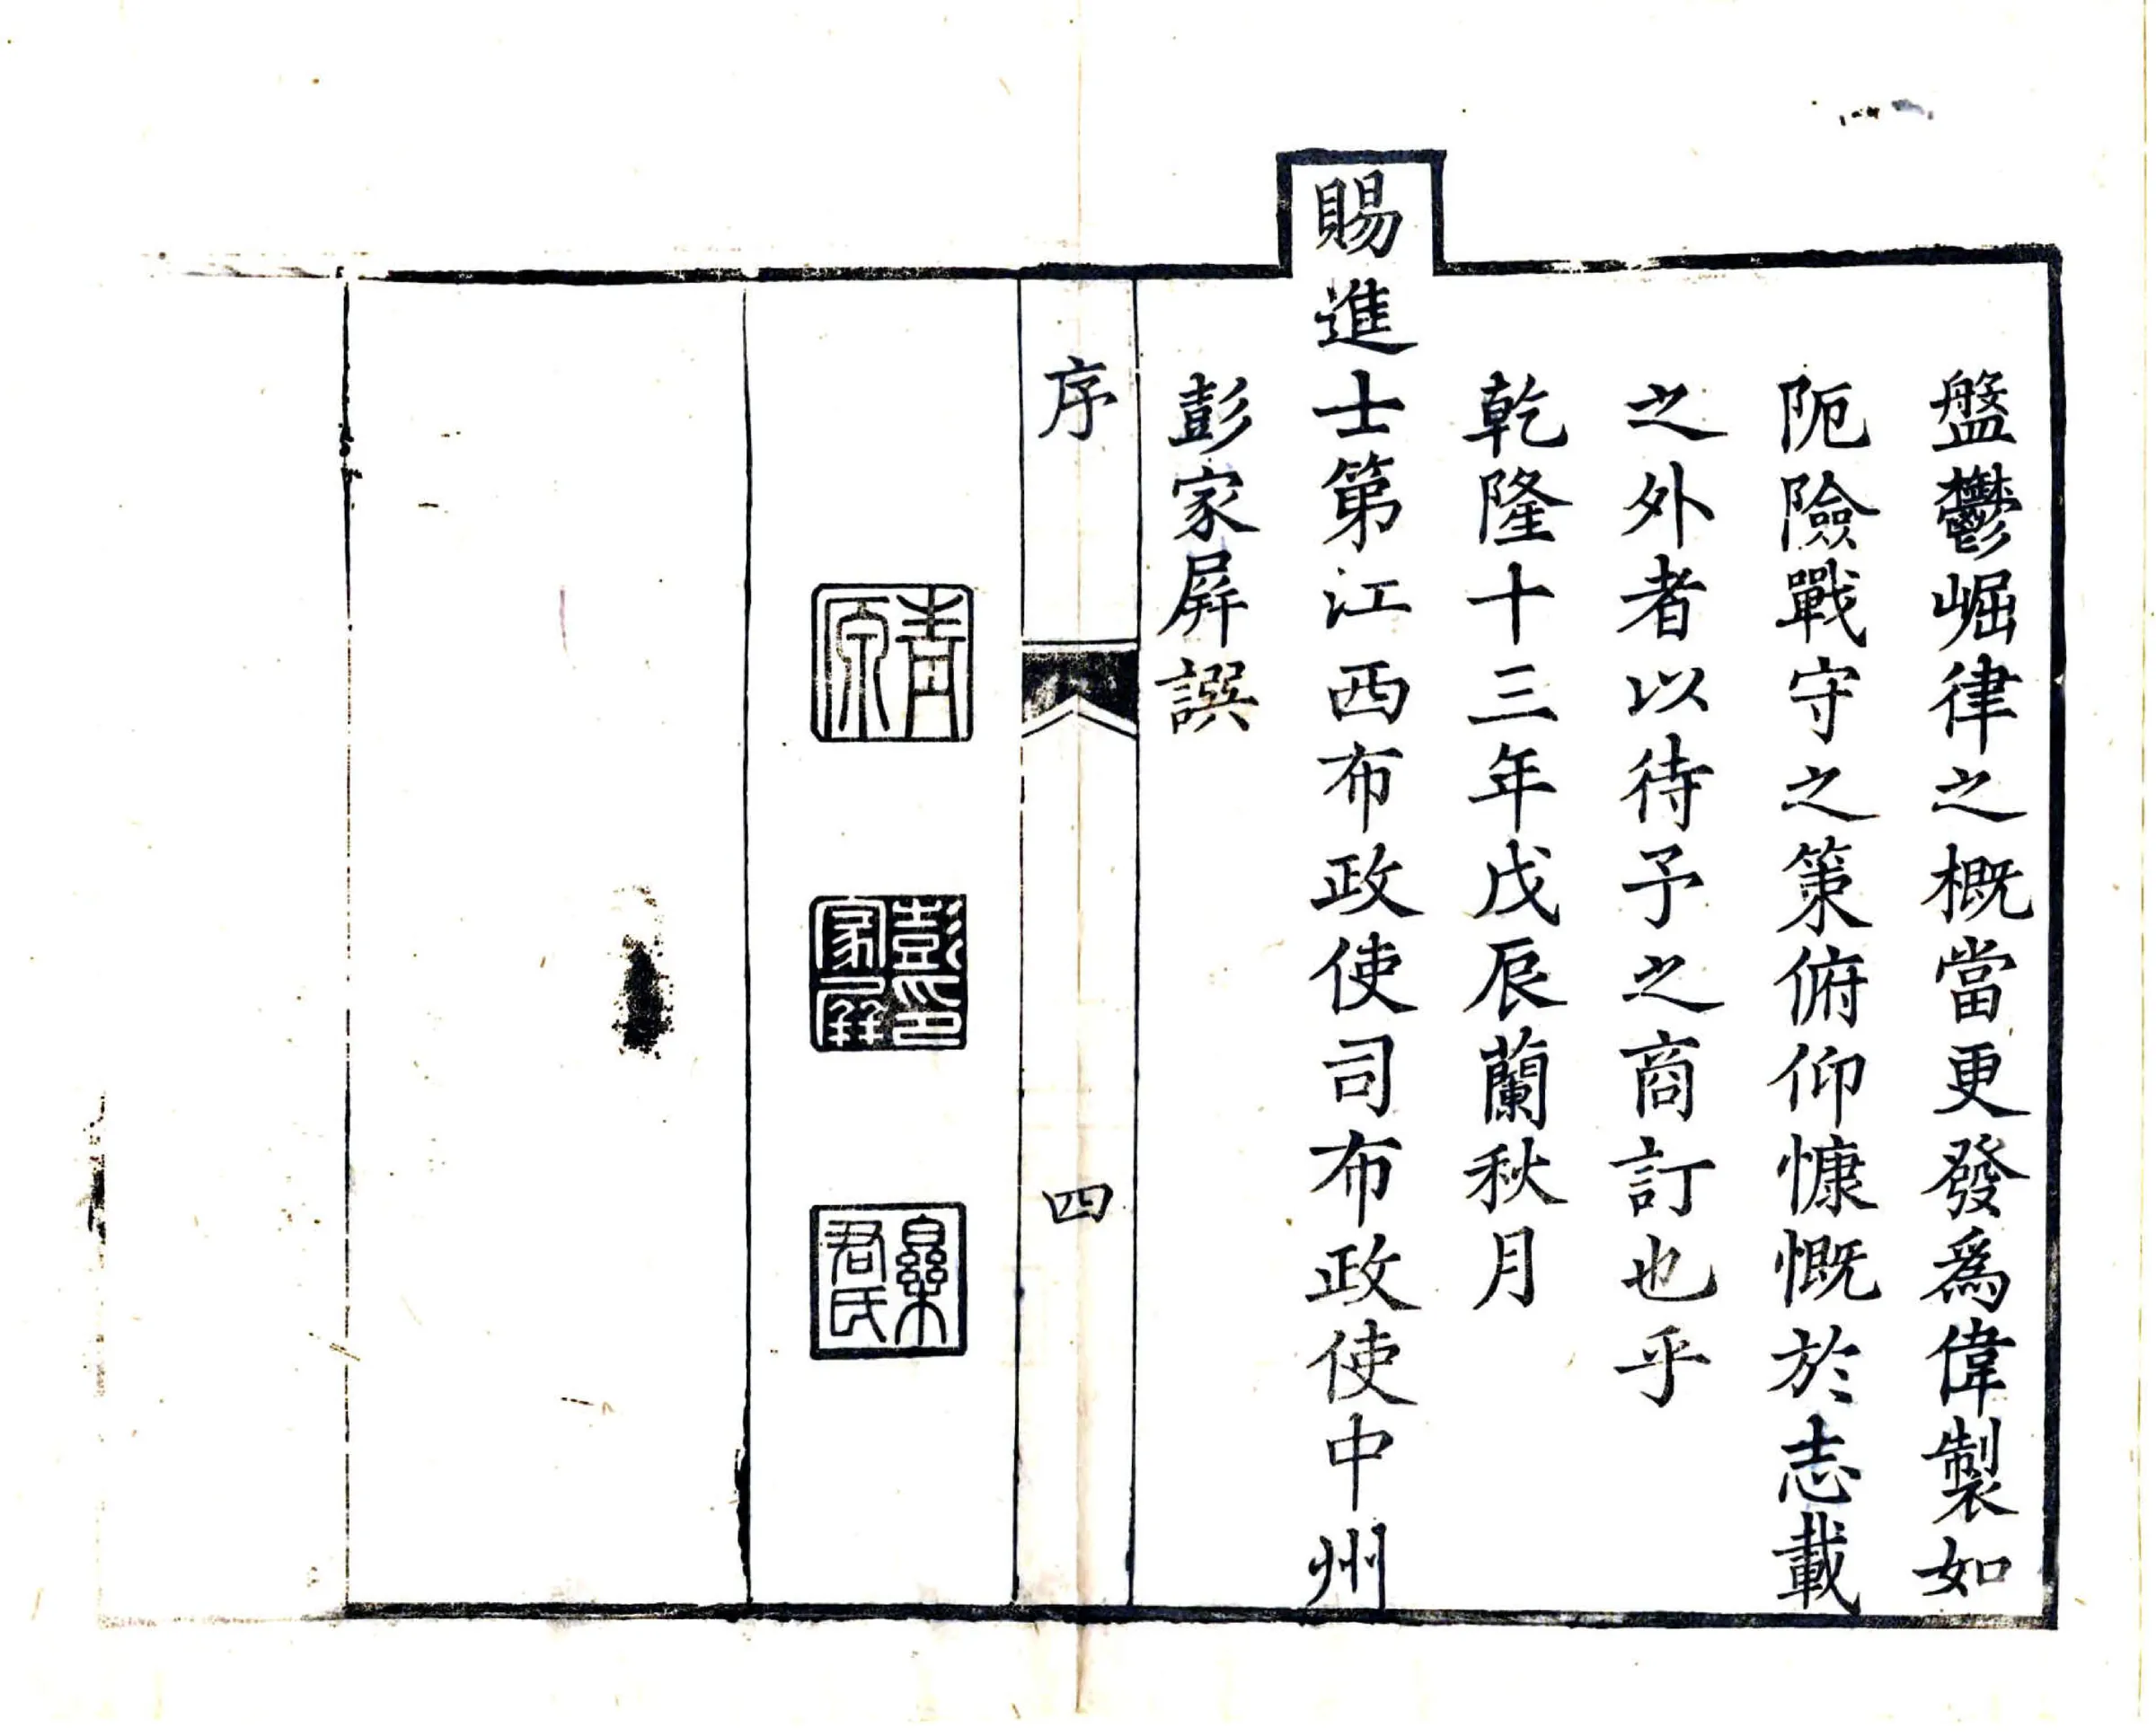 盤鬱崛律之概當更發爲偉製如
阨險戰守之策俯仰慷慨於志載
之外者以待予之商訂也乎
乾隆十三年戊辰蘭秋月
賜進士第江西布政使司布政使中州
彭家屏譔
序
四
青原
彭家屏印
樂君氏